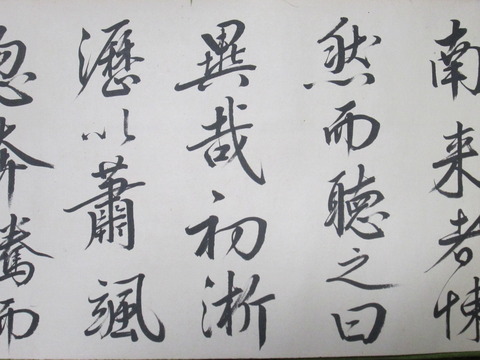 南来者悚
然而聴之曰
異哉初淅
瀝以蕭颯
忽奔騰而